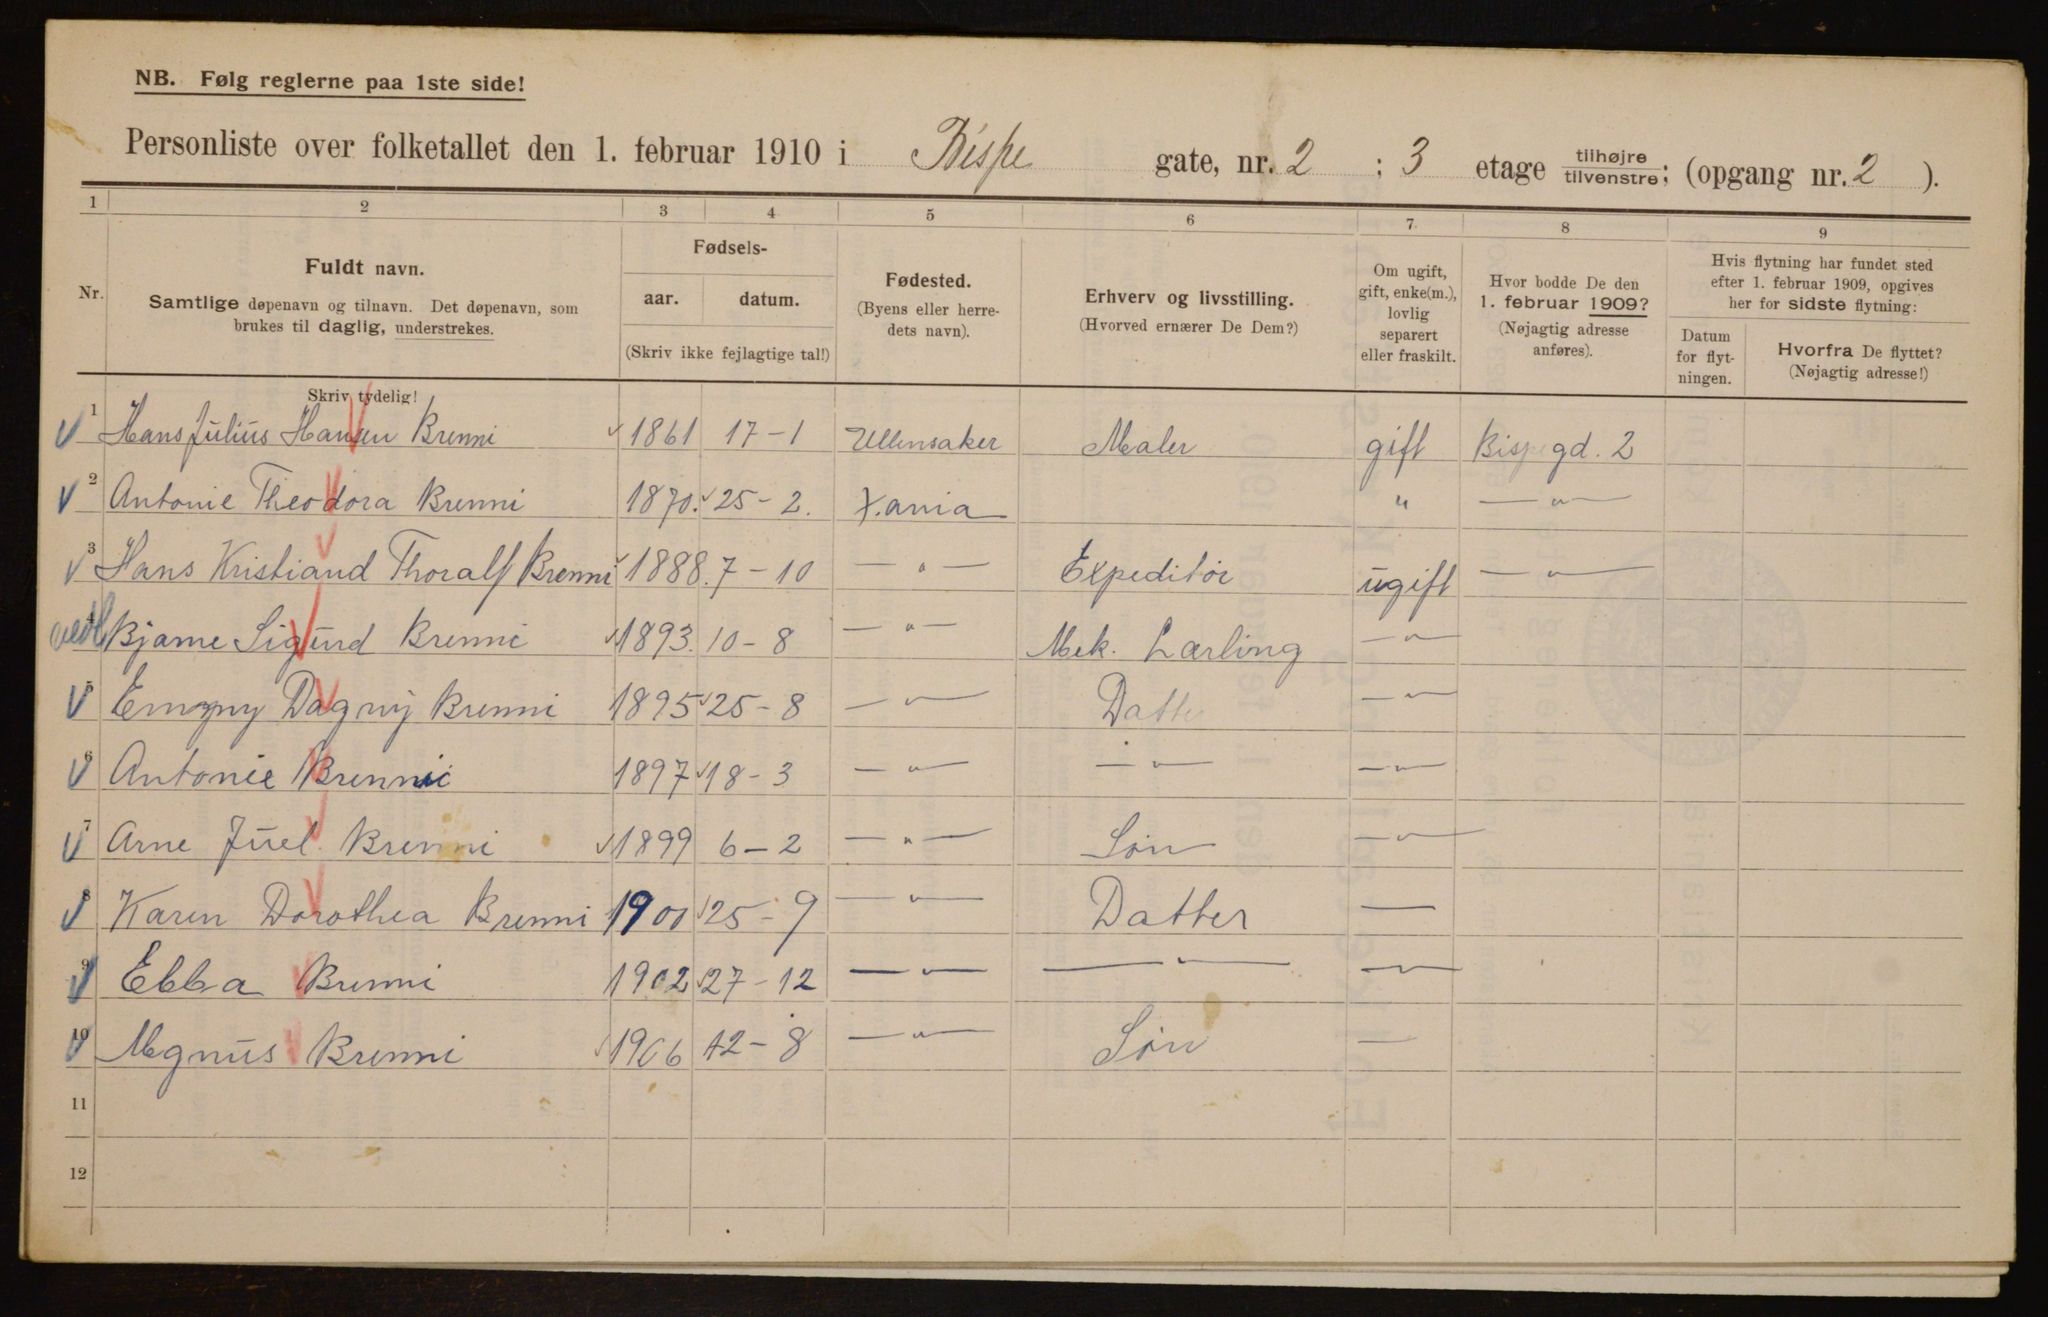 NB. Følg reglerne paa 1ste side!
Personliste over folketallet den 1. februar 1910 i Bispe gate, nr. 2 ; 3 etage tilhøjre tilvenstre; (opgang nr. 2 ).
1 2 3 4 5 6 7 8 9
Nr. Fuldt navn. Samtlige døpenavn og tilnavn. Det døpenavn, som brukes til daglig, understrekes.
Fødsels- aar. datum. (Skriv ikke fejlagtige tal!)
Fødested. (Byens eller herredets navn).
Erhverv og livsstilling. (Hvorved ernærer De Dem?)
Om ugift, gift, enke(m.), lovlig separert eller fraskilt.
Hvor bodde De den 1. februar 1909? (Nøjagtig adresse anføres).
Hvis flytning har fundet sted efter 1. februar 1909, opgives her for sidste flytning:
Datum for flytningen. Hvorfra De flyttet? (Nøjagtig adresse!)
Skriv tydelig!
1 Hans Julius Hansen Brenni 1861 17-1 Ullensaker Maler gift Bispegd. 2
2 Antonie Theodora Brenni 1870. 25-2. X.ania " — " —
3 Hans Kristiand Thoralf Brenni 1888. 7-10 — " — Expeditør ugift — " —
4 Bjarne Sigurd Brenni 1893. 10-8 — " — Mek. Lærling — " —
5 Dagny Brenni 1895 25-8 — " — Datter — " —
6 Antonie Brenni 1897 18-3 — " — — " — — " —
7 Arne Juel Brenni 1899 6-2 — " — Søn — " —
8 Karen Dorothea Brenni 1900 25-9 — " — Datter —
9 Ebba Brenni 1902 27-12 — " — — " — — " —
10 Magnus Brenni 1906 12-8 — " — Søn —
11
12